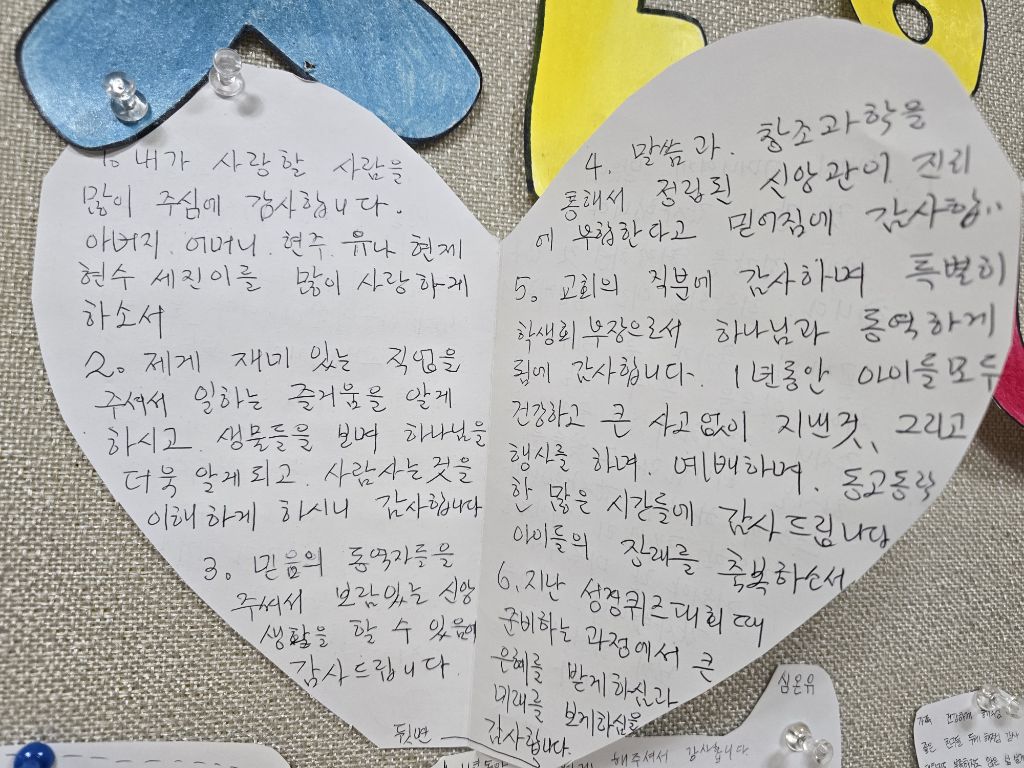 1. 내가 사랑할 사람을
많이 주심에 감사합니다.
아버지. 어머니. 현주. 유나 현제
현수 세진이를 많이 사랑하게
하소서
2. 제게 재미 있는 직업을
주셔서 일하는 즐거움을 알게
하시고 생물들을 보며 하나님을
더욱 알게되고 사람사는것을
이해하게 하시니 감사합니다
3. 믿음의 동역자들을
주셔서 보람있는 신앙
생활을 할 수 있음에
감사드립니다.
뒷면
4. 말씀과. 창조과학을
통해서 정립된 신앙관이 진리
에 부합한다고 믿어짐에 감사함..
5. 교회의 직분에 감사하며 특별히
학생회 부장으로서 하나님과 동역하게
됨에 감사합니다. 1년동안 아이들모두
건강하고 큰 사고없이 지낸것, 그리고
행사를 하며. 예배하며. 동고동락
한 많은 시간들에 감사드립니다
아이들의 장래를 축복하소서
6. 지난 성경퀴즈대회때
준비하는 과정에서 큰
은혜를 받게하심과
미래를 보게하심을
감사합니다.
심온유
해주셔서 감사합니다